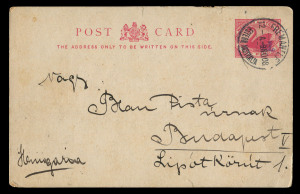 POST CARD
THE ADDRESS ONLY TO BE WRITTEN ON THIS SIDE.
Nagy
Blau Pista
úrnak
Budapest V
Hungaria
Lipót Körút 1.